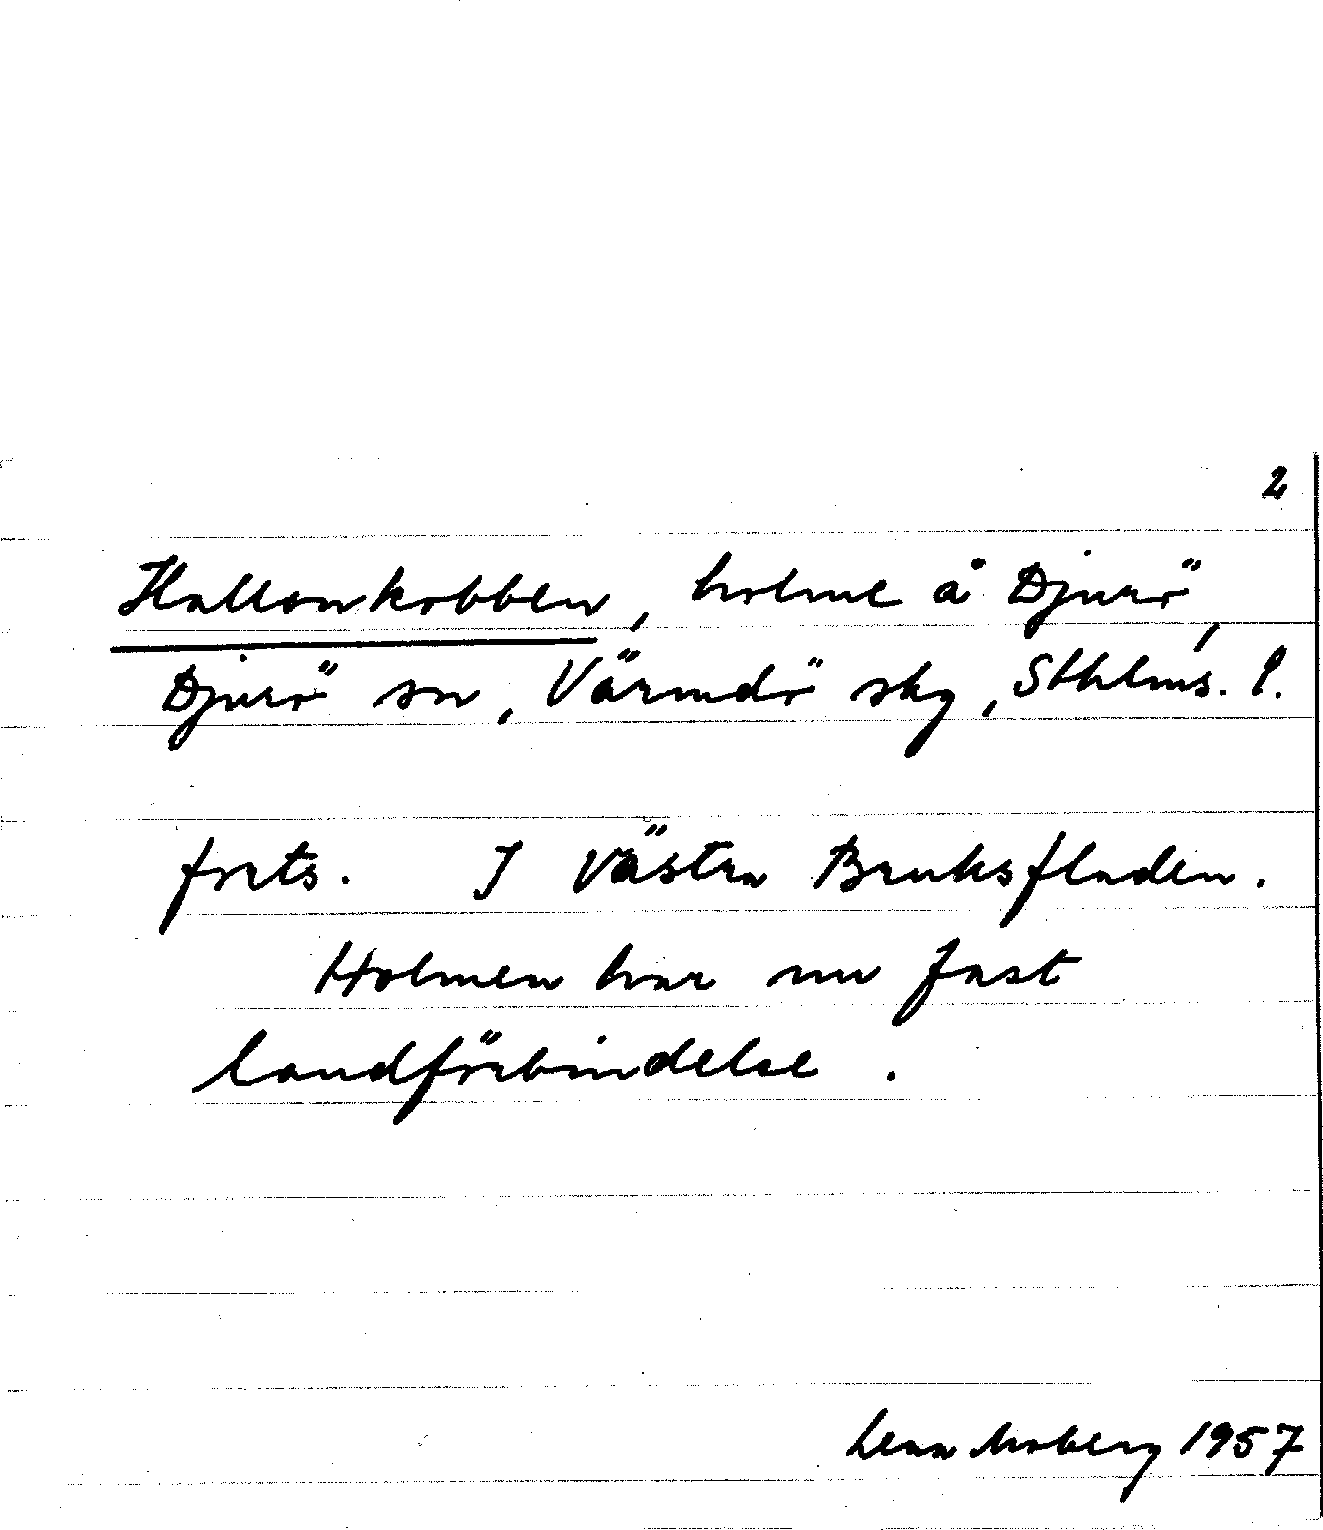 2
Hallonkobben, holme å Djurö,
Djurö sn, Värmdö skg, Sthlms. l.
forts. I Västra Bruksfladen.
Holmen har nu fast
landförbindelse.
Lena Moberg 1957